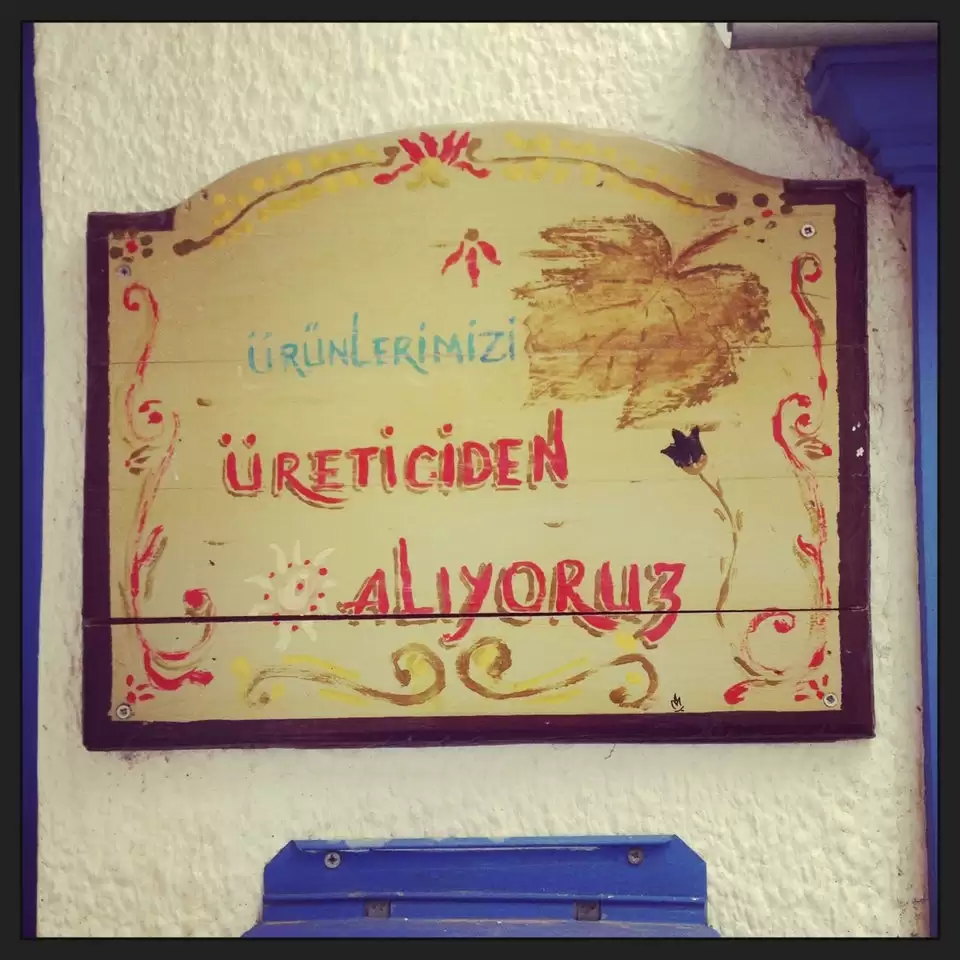 ÜRÜNLERİMİZİ
ÜRETİCİDEN
ALIYORUZ